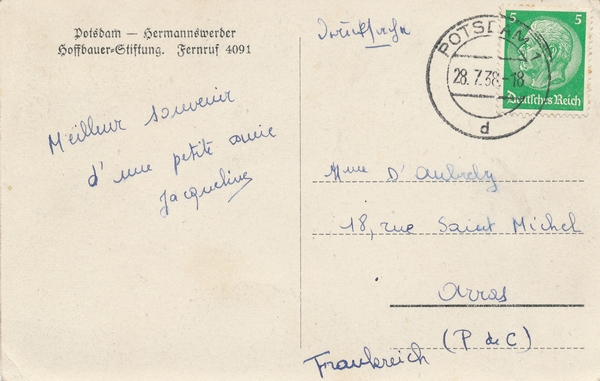 Potsdam — Hermannswerder
Hoffbauer-Stiftung. Fernruf 4091
Drucksache
POTSDAM 1
28.7.38.-18
d
5 5
Deutsches Reich
Meilleur souvenir
d'une petite amie
Jacqueline
Mme D'Aubrely
18, rue Saint Michel
Arras
(P de C)
Frankreich